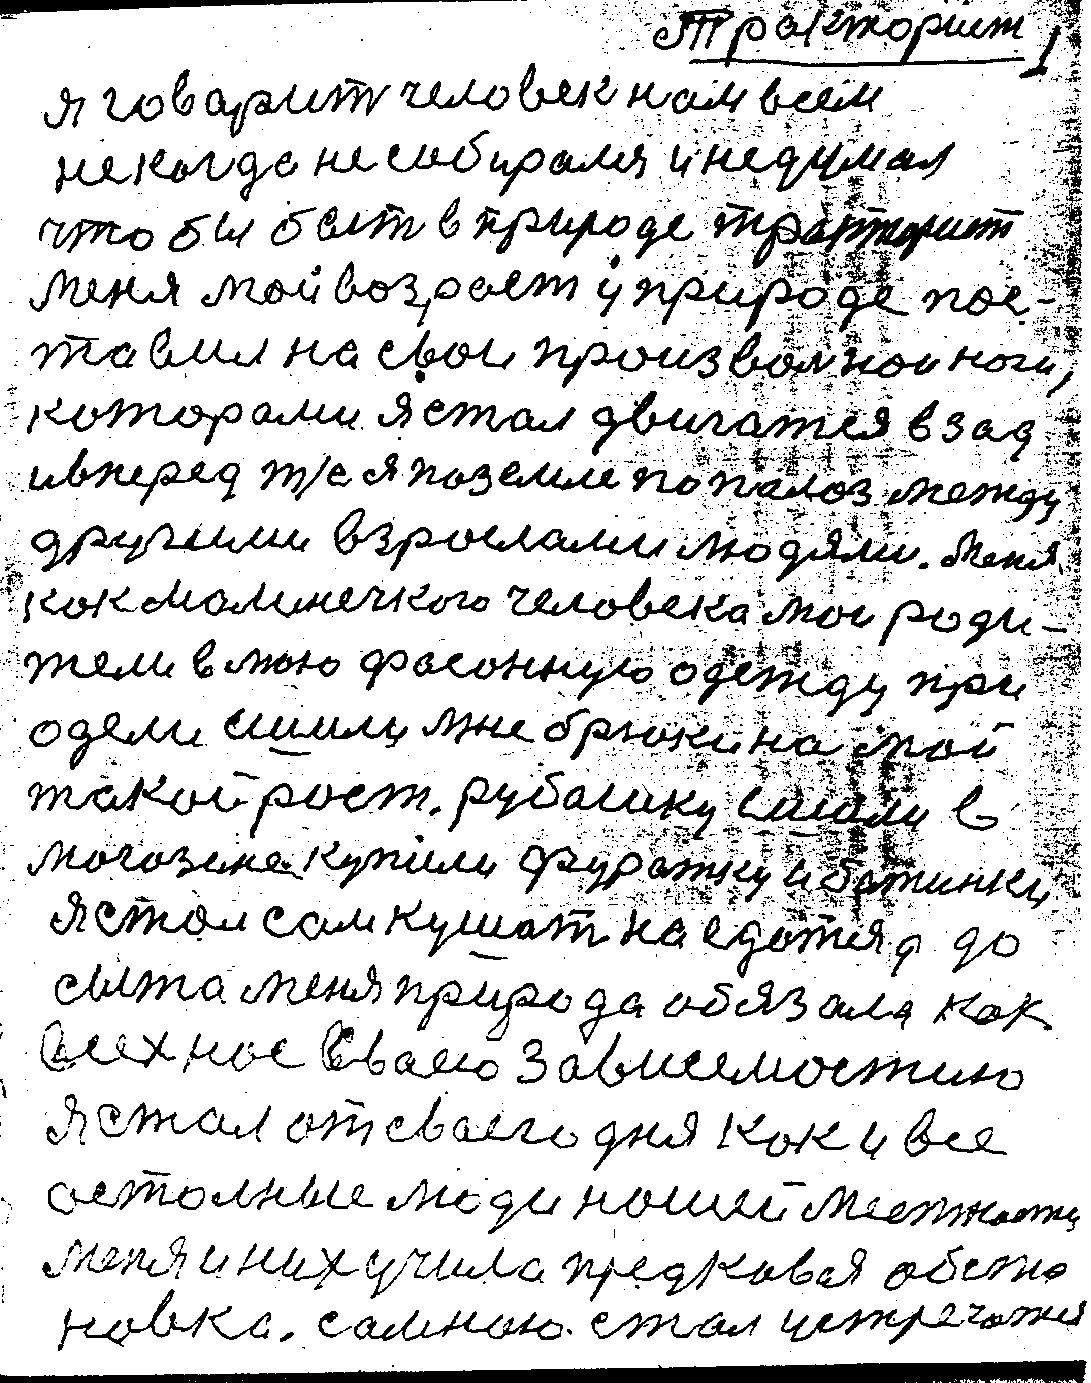 Тракторист 1
я говарит человек нам всем
некогда не собирался и недумал
что бы быт в природе тракторист
меня мой возраст и природе пос-
тавил на свои произволнои ноги,
которами я стал двигатся взад
ивперед т/е я поземле пополоз между
другими взрослами людями. Меня
как малинечкого человека мои роди-
тели в мою фасонную одежду при
одели сшили мне брюки на мой
такой рост. рубашку сшили в
могозине купили фуражку и ботинки
я стал сам кушат наедатся до
сыта меня природа обязала как
всех нас сваею зависемостию
я стал от сваего дня как и все
остолные люди нашей местности
меня и них учила предковая обста
новка. самною. стал устречатся